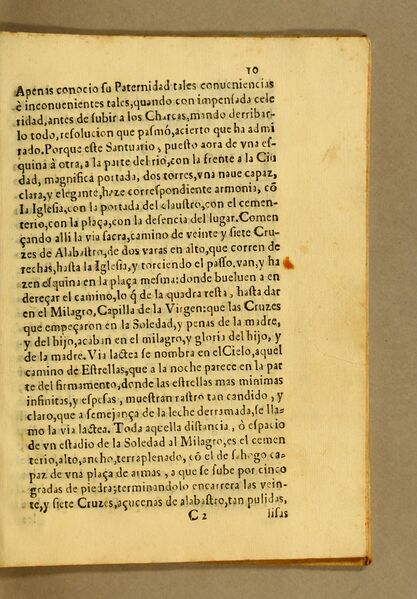 10
Apenas conocio su Paternidad tales conueniencias
è inconuenientes tales, quando con impensada cele
ridad, antes de subir a los Charcas, mando derribar-
lo todo, resolucion que pasmó, acierto que ha admi
rado. Porque este Santuario, puesto aora de vna es-
quina à otra, a la parte del rio, con la frente a la Ciu
dad, magnifica portada, dos torres, vna naue capaz,
clara, y elegante, haze correspondiente armonia, cõ
la Iglesia, con la portada del claustro, con el cemen-
terio, con la plaça, con la desencia del lugar. Comen
çando alli la via sacra, camino de veinte y siete Cru-
zes de Alabastro, de dos varas en alto, que corren de
rechas, hasta la Iglesia, y torciendo el passo, van, y ha
zen esquina en la plaça mesma: donde bueluen a en-
dereçar el camino, lo q̃ de la quadra resta, hasta dar
en el Milagro, Capilla de la Virgen: que las Cruzes
que empeçaron en la Soledad, y penas de la madre,
y del hijo, acaban en el milagro, y gloria del hijo, y
de la madre. Via lactea se nombra en el Cielo, aquel
camino de Estrellas, que a la noche parece en la par
te del firmamento, donde las estrellas mas minimas
infinitas, y espesas, muestran rastro tan candido, y
claro, que a semejança de la leche derramada, se lla-
mo la via lactea. Toda aquella distancia, ò espacio
de vn estadio de la Soledad al Milagro, es el cemen
terio, alto, ancho, terraplenado, cõ el desahogo ca-
paz de vnà plaça de armas, a que se sube por cinco
gradas de piedra; terminandolo en carrera las vein-
te, y siete Cruzes, açucenas de alabastro, tan pulidas,
C 2
lisas